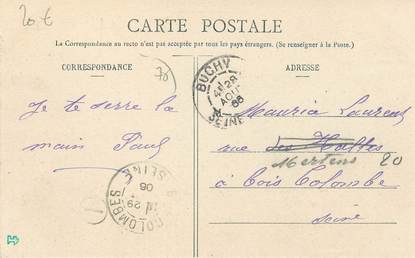 20 €
CARTE POSTALE
La Correspondance au recto n'est pas acceptée par tous les pays étrangers. (Se renseigner à la Poste.)
CORRESPONDANCE
ADRESSE
76
BUCHY
28
AOUT
06
SNE INFRE
Je te serre la
main Paul
Maurice Laurent
rue des Halles
Mertens 20
à Bois Colombe
Seine
COLOMBES
SEINE
29
06